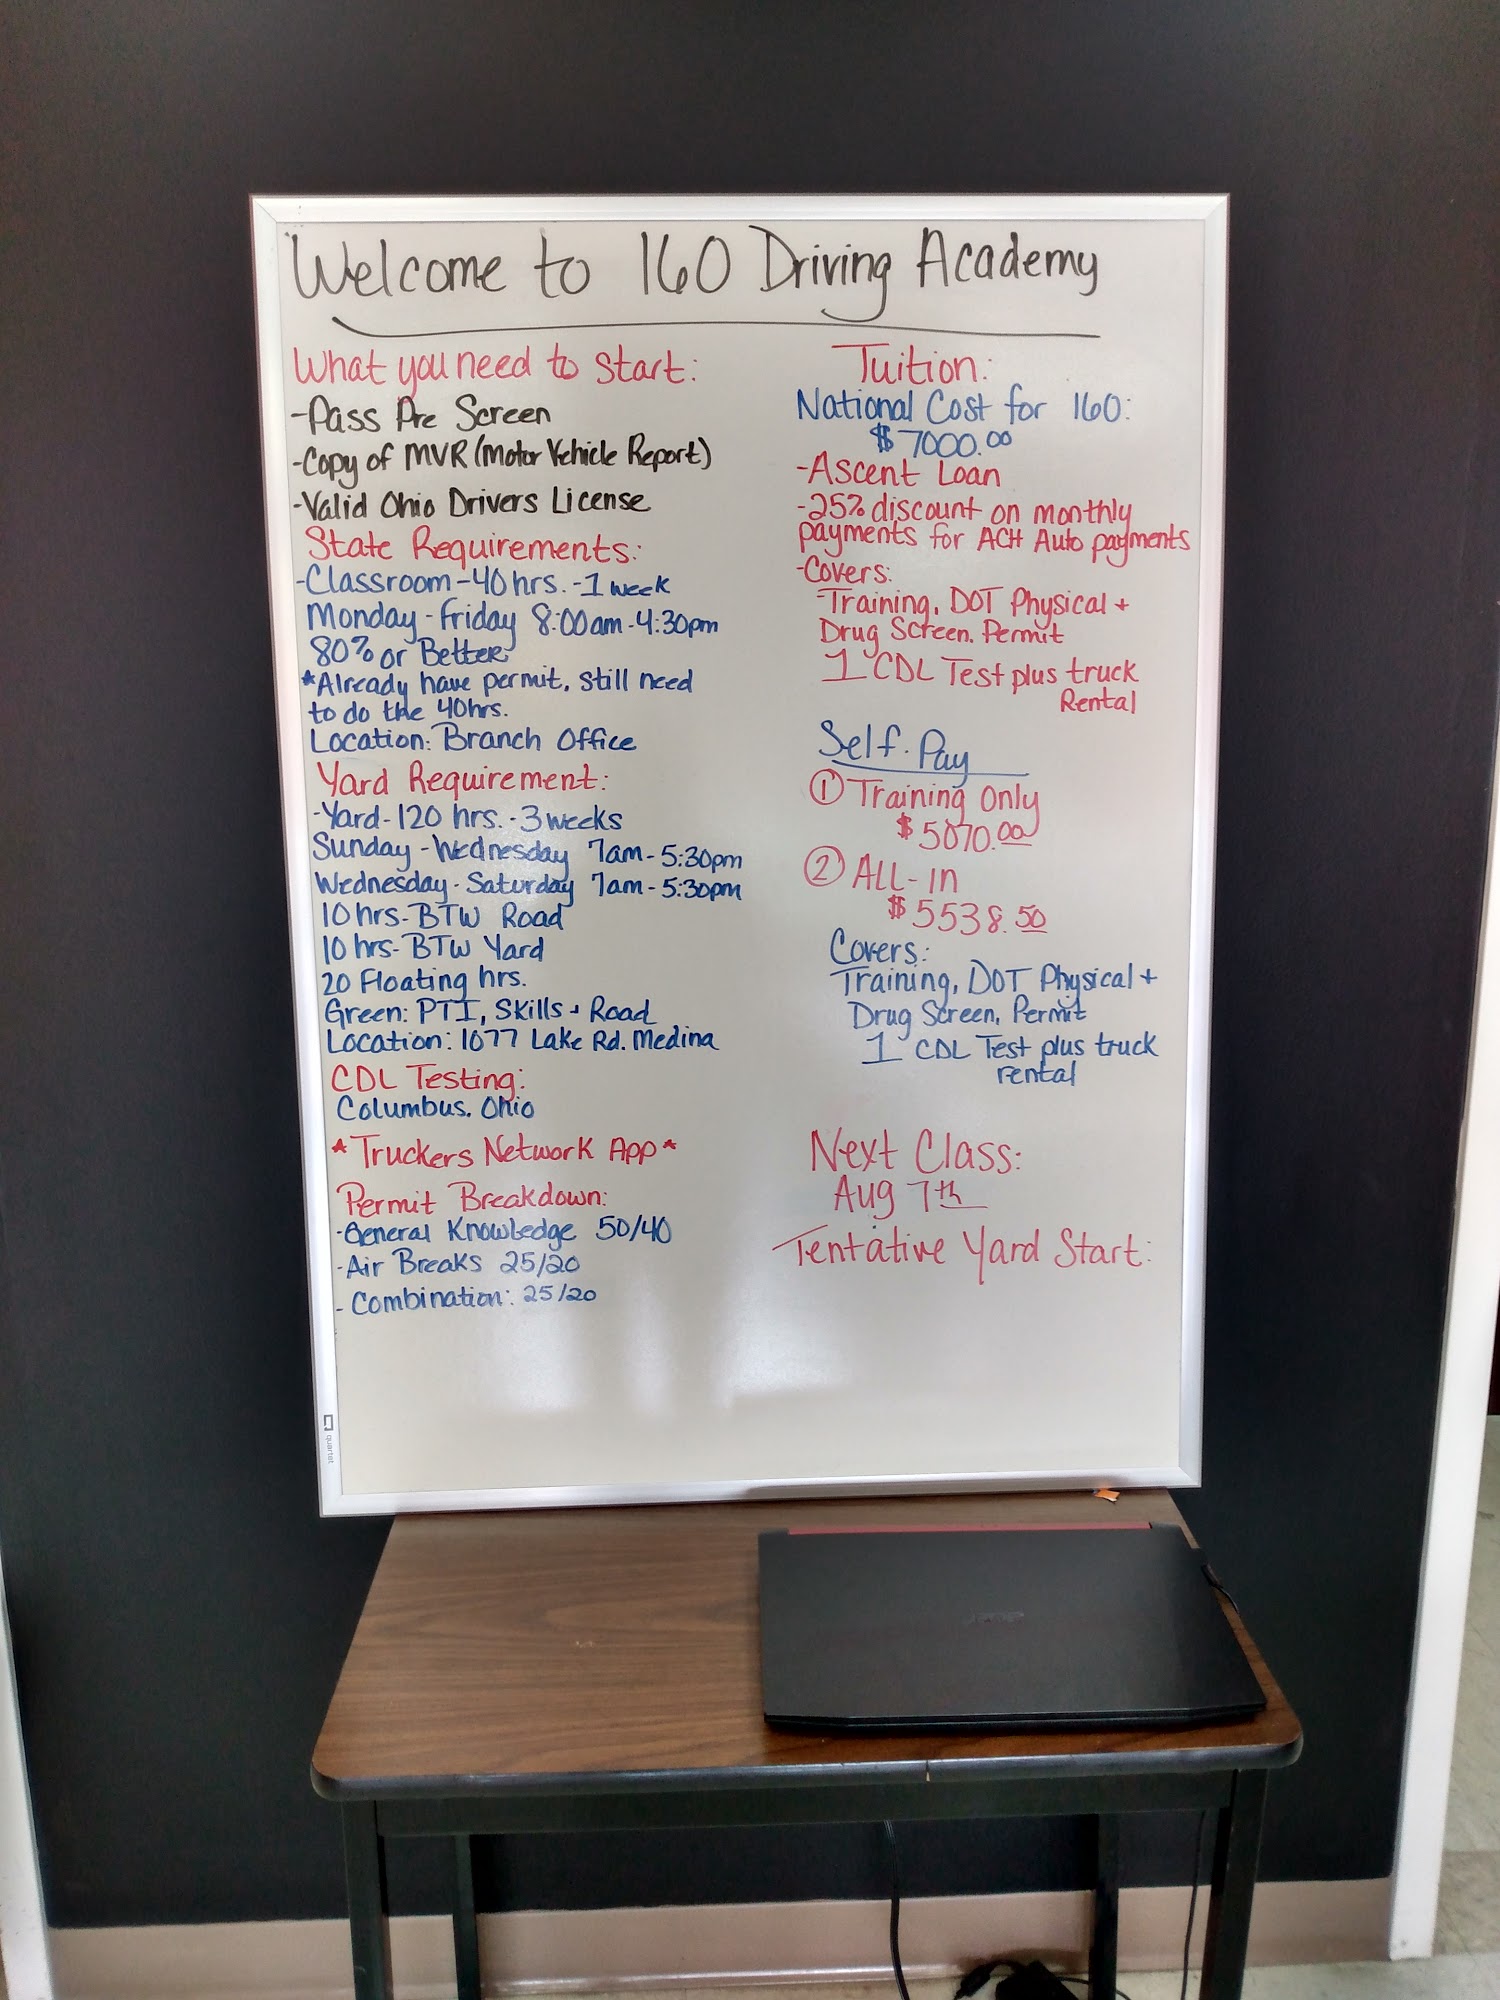 Welcome to 160 Driving Academy
What you need to start:
-Pass Pre Screen
-Copy of MVR (Motor Vehicle Report)
-Valid Ohio Drivers License
State Requirements:
-Classroom-40hrs.-1 week
Monday-Friday 8:00am-4:30pm
80% or Better
*Already have permit, still need
to do the 40hrs.
Location: Branch Office
Yard Requirement:
-Yard-120 hrs.-3 weeks
Sunday-Wednesday 7am-5:30pm
Wednesday-Saturday 7am-5:30pm
10 hrs-BTW Road
10 hrs-BTW Yard
20 Floating hrs.
Green: PTI, Skills + Road
Location: 1077 Lake Rd. Medina
CDL Testing:
Columbus, Ohio
*Truckers Network App*
Permit Breakdown:
-General Knowledge 50/40
-Air Breaks 25/20
-Combination: 25/20
Tuition:
National Cost for 160:
$7000.00
-Ascent Loan
-25% discount on monthly
payments for ACH Auto payments
-Covers:
-Training, DOT Physical +
Drug Screen. Permit
1 CDL Test plus truck
Rental
Self-Pay
① Training Only
$5070.00
② ALL-IN
$5538.50
Covers:
Training, DOT Physical +
Drug Screen, Permit
1 CDL Test plus truck
rental
Next Class:
Aug 7th
Tentative Yard Start:
quartet